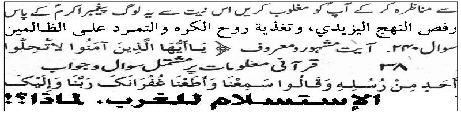 سے مناظرہ کر کے آپ کو مغلوب کریں اس نیت سے یہ لوگ پیغمبر اکرمؐ کے پاس
رفض النهج اليزيدي، وتغذية روح الكره والتمرد على الظالمين
سوال ۲۳۰. آیت مشہورہ معروف ﴿ يَا أَيُّهَا الَّذِينَ آمَنُوا لَا تُحِلُّوا
۳۸ قرآنی معلومات پر مشتمل سوال و جواب
أَحَدٍ مِنْ رُسُلِهِ وَقَالُوا سَمِعْنَا وَأَطَعْنَا غُفْرَانَكَ رَبَّنَا وَإِلَيْكَ
الإستسلام للغرب. لماذا؟!